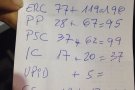 ERC 77+119=196
PP 28+67=95
PSC 37+62=99
IC 17+20=37
+5=